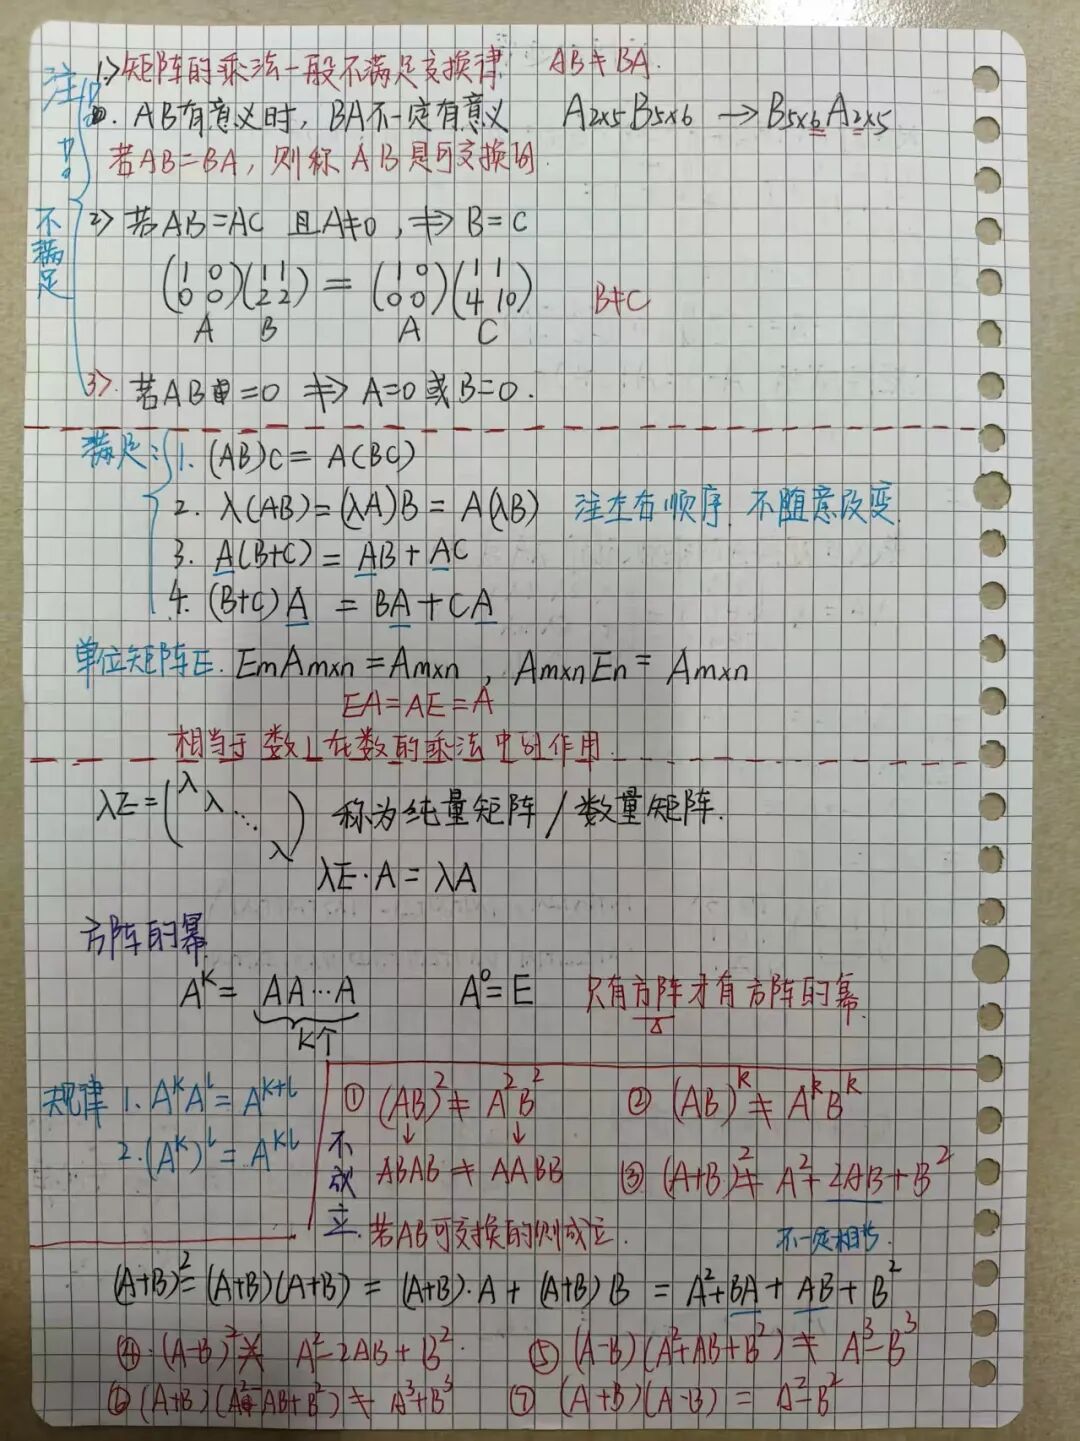 注
不满足
1> 矩阵的乘法一般不满足交换律 AB≠BA.
AB有意义时，BA不一定有意义 A2×5 B5×6 → B5×6 A2×5
若AB=BA，则称AB是可交换的.
2> 若AB=AC 且A≠0，⇏ B=C
(1 0 0 0)(1 1 2 2) = (1 0 0 0)(1 1 4 10) B≠C
A B A C
3>. 若AB=0 ⇏ A=0或B=0.
满足: 1. (AB)C= A(BC)
2. λ(AB)=(λA)B = A(λB) 注左右顺序 不随意改变
3. A(B+C) = AB+AC
4. (B+C)A = BA+CA
单位矩阵E. EmAm×n=Am×n , Am×nEn= Am×n
EA=AE=A
相当于数1在数的乘法中的作用.
λE=(λ λ ⋱ λ) 称为纯量矩阵/数量矩阵.
λE·A=λA
方阵的幂
A^k= AA…A A^0=E 只有方阵才有方阵的幂.
K个
规律 1. A^k A^l = A^{k+l}
2. (A^k)^l = A^{kl}
不成立
① (AB)^2 ≠ A^2B^2 ② (AB)^k ≠ A^kB^k
↓ ↓
ABAB ≠ AABB ③ (A+B)^2≠ A^2+2AB+B^2
若AB可交换的则成立. 不一定相等.
(A+B)^2=(A+B)(A+B) = (A+B)·A+(A+B)B = A^2+BA+AB+B^2
④.(A-B)^2≠ A^2-2AB+B^2. ⑤ (A-B)(A^2+AB+B^2) ≠ A^3-B^3
⑥ (A+B)(A^2-AB+B^2) ≠ A^3+B^3 ⑦ (A+B)(A-B) = A^2-B^2